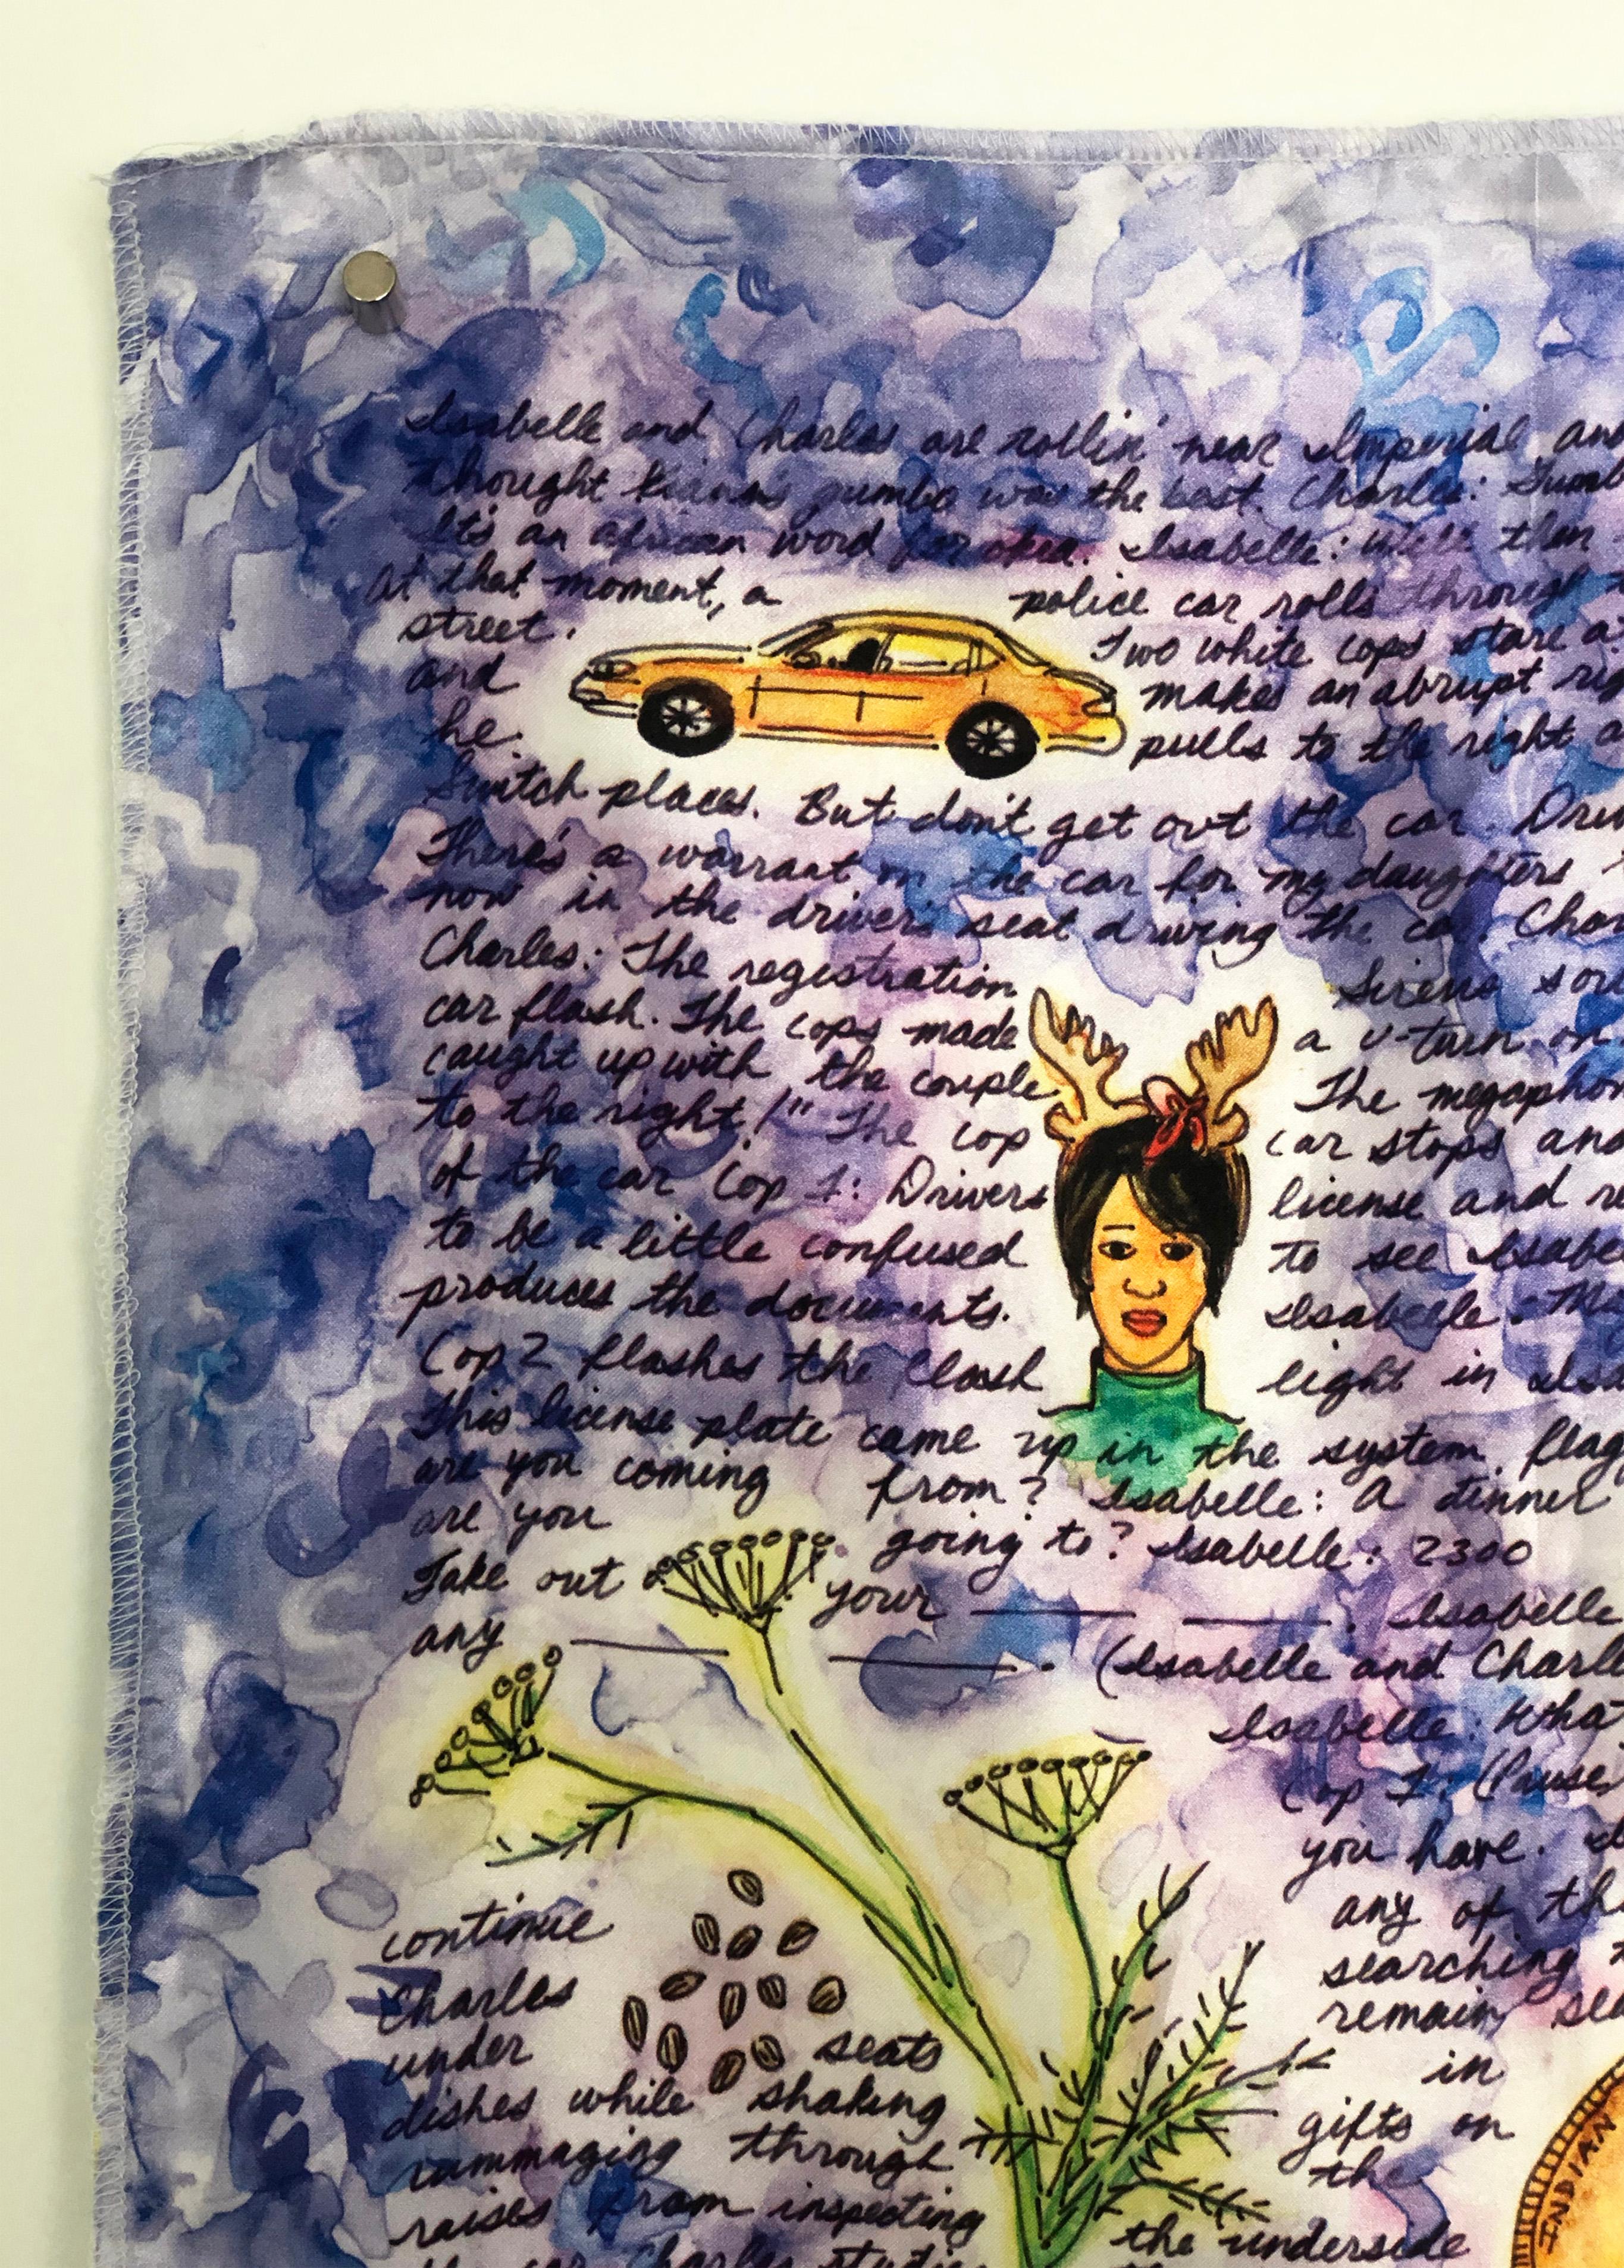 Isabelle and Charles are rollin' near Imperial an
thought Kiana's gumbo was the best. Charles: Gumb
It's an african word for okra. Isabelle: Well then
At that moment, a police car rolls through
street. Two white cops stare a
and makes an abrupt rig
he pulls to the right a
Switch places. But don't get out the car. Driv
There's a warrant on the car for my daughters
now in the driver's seat driving the car. Cha
Charles: The registration Sirens sou
car flash. The cops made a U-turn on
caught up with the couple The megapho
to the right!" The cop car stops and
of the car Cop 1: Drivers license and r
to be a little confused to see Isabe
produces the documents. Isabelle: M
Cop 2 flashes the flash light in Isa
This license plate came up in the system. flagg
are you coming from? Isabelle: A dinner
are you going to? Isabelle: 2300
Take out your ____ ____. Isabelle
any ____ ____. (Isabelle and Charle
Isabelle: Wha
Cop 1: (Pause)
you have. I
continue any of th
Charles searching
under seats remain se
dishes while shaking in
rummaging through gifts on
raises from inspecting the
the underside
the car Charles studie
INDIAN